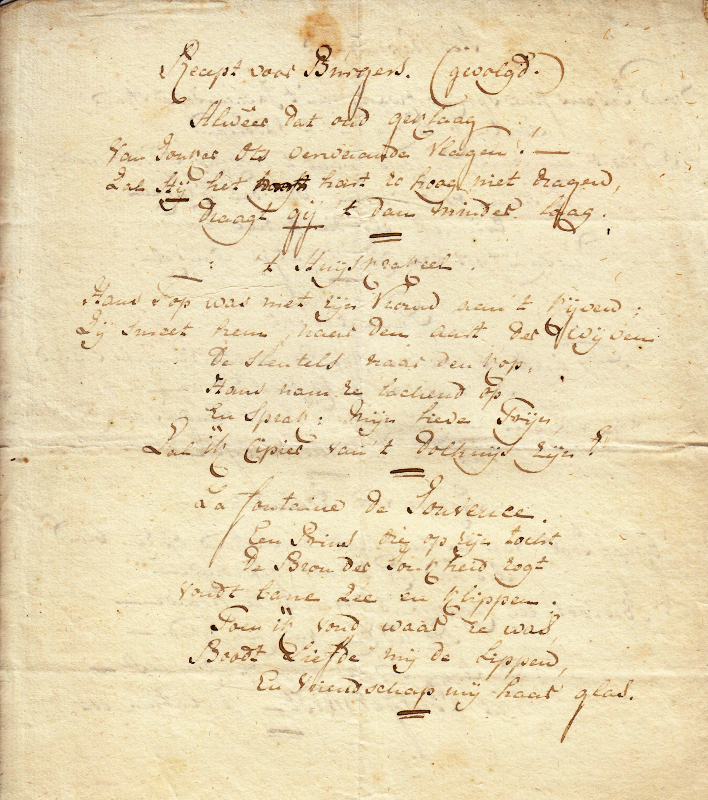 Recept voor Burgers. (gevolgd.)
Alweer dat oud geklaag
Van Jonker Ots verwaande vlagen! —
Zal Hij het hart zo hoog niet dragen,
Draagt gij 't dan minder laag.
't Huiskrakeel.
Hans Top was met zijn Vrouw aan 't kijven;
Zij smeet hem, naar den aart der Wijven
De sleutels naar den kop,
Hans nam ze lachend op
En sprak: Mijn lieve Trijn,
Zal ik Cipier van 't dolhuijs zijn?
La fontaine de Jouvence.
Een Prins die op zijn tocht
De Bron der Jonkheid zogt
Vondt bane Zee en klippen:
Toen ik vond waar ze was,
Boodt Liefde mij de Lippen,
En Vriendschap mij haar glas.